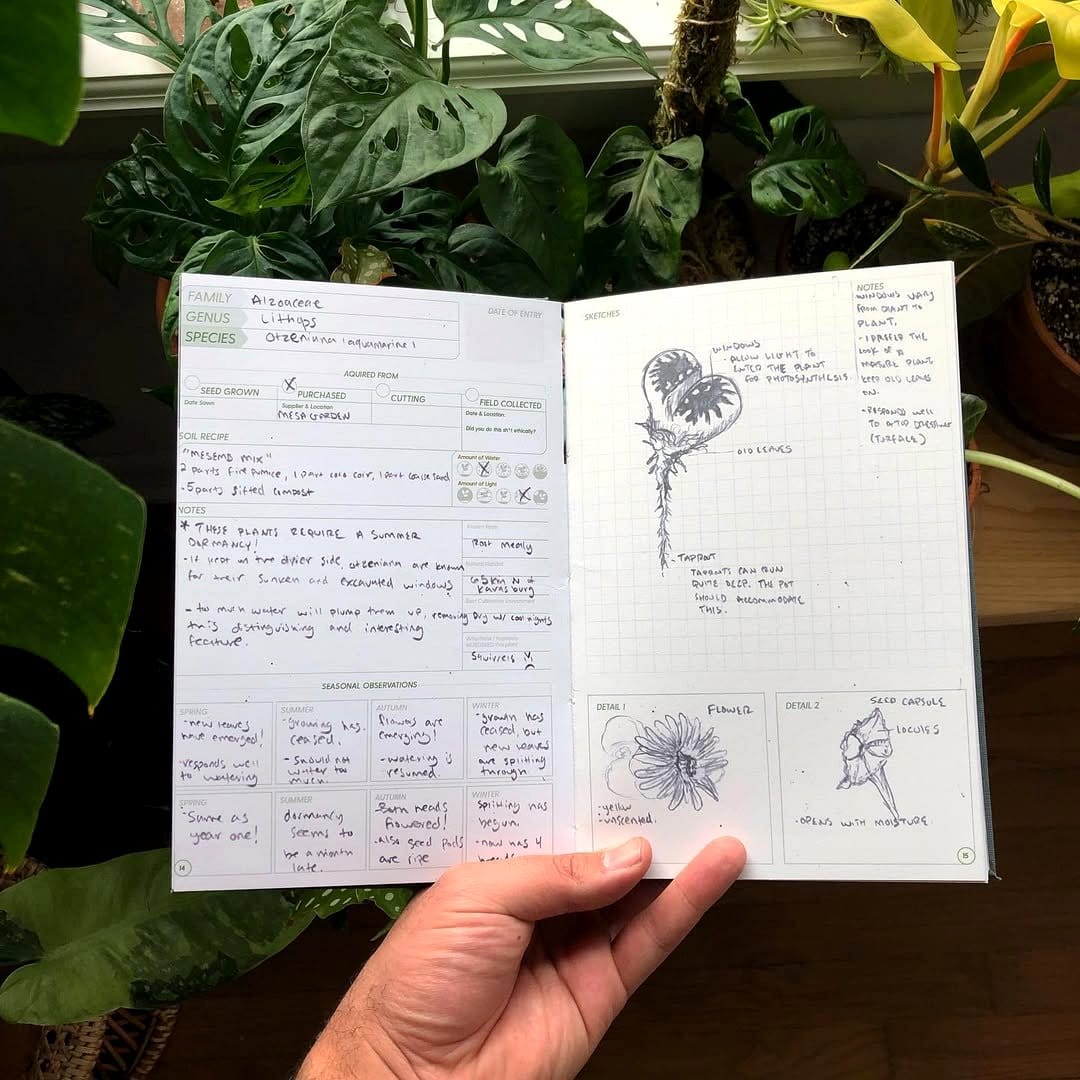 FAMILY Aizoaceae
GENUS Lithops
SPECIES otzeniana (aquamarine)
DATE OF ENTRY
AQUIRED FROM
SEED GROWN
X PURCHASED
CUTTING
FIELD COLLECTED
Date Sown
Supplier & Location
MESA GARDEN
Date & Location:
Did you do this sh*t ethically?
SOIL RECIPE
"MESEMB MIX"
2 parts fine pumice, 1 part coco coir, 1 part coarse sand
.5 parts sifted compost
Amount of Water
X
Amount of Light
X
NOTES
* THESE PLANTS REQUIRE A SUMMER
DORMANCY!
- if kept on the dryer side, otzeniana are known
for their sunken and excavated windows
- too much water will plump them up, removing
this distinguishing and interesting
feature.
Root mealy
65km N of
Karasburg
Dry w/ cool nights
Squirrels
SEASONAL OBSERVATIONS
SPRING
-new leaves
have emerged!
-responds well
to watering
SUMMER
-growing has
ceased.
- should not
water too
much.
AUTUMN
flowers are
emerging!
-watering is
resumed.
WINTER
-growth has
ceased, but
new leaves
are splitting
through.
SPRING
-Same as
year one!
SUMMER
dormancy
seems to
be a month
late.
AUTUMN
-Both heads
flowered!
-also seed pods
are ripe
WINTER
splitting has
begun.
-now has 4
heads
14
SKETCHES
WINDOWS
- ALLOW LIGHT TO
ENTER THE PLANT
FOR PHOTOSYNTHESIS.
OLD LEAVES
- TAPROOT
TAPROOTS CAN RUN
QUITE DEEP. THE POT
SHOULD ACCOMMODATE
THIS.
NOTES
WINDOWS VARY
FROM PLANT TO
PLANT.
- I PREFER THE
LOOK OF A
MATURE PLANT
KEEP OLD LEAVES
ON.
- RESPONDS WELL
TO A TOP DRESSING
(TURFACE)
DETAIL 1
FLOWER
-yellow
-unscented.
DETAIL 2
SEED CAPSULE
LOCULES
- OPENS WITH MOISTURE
15